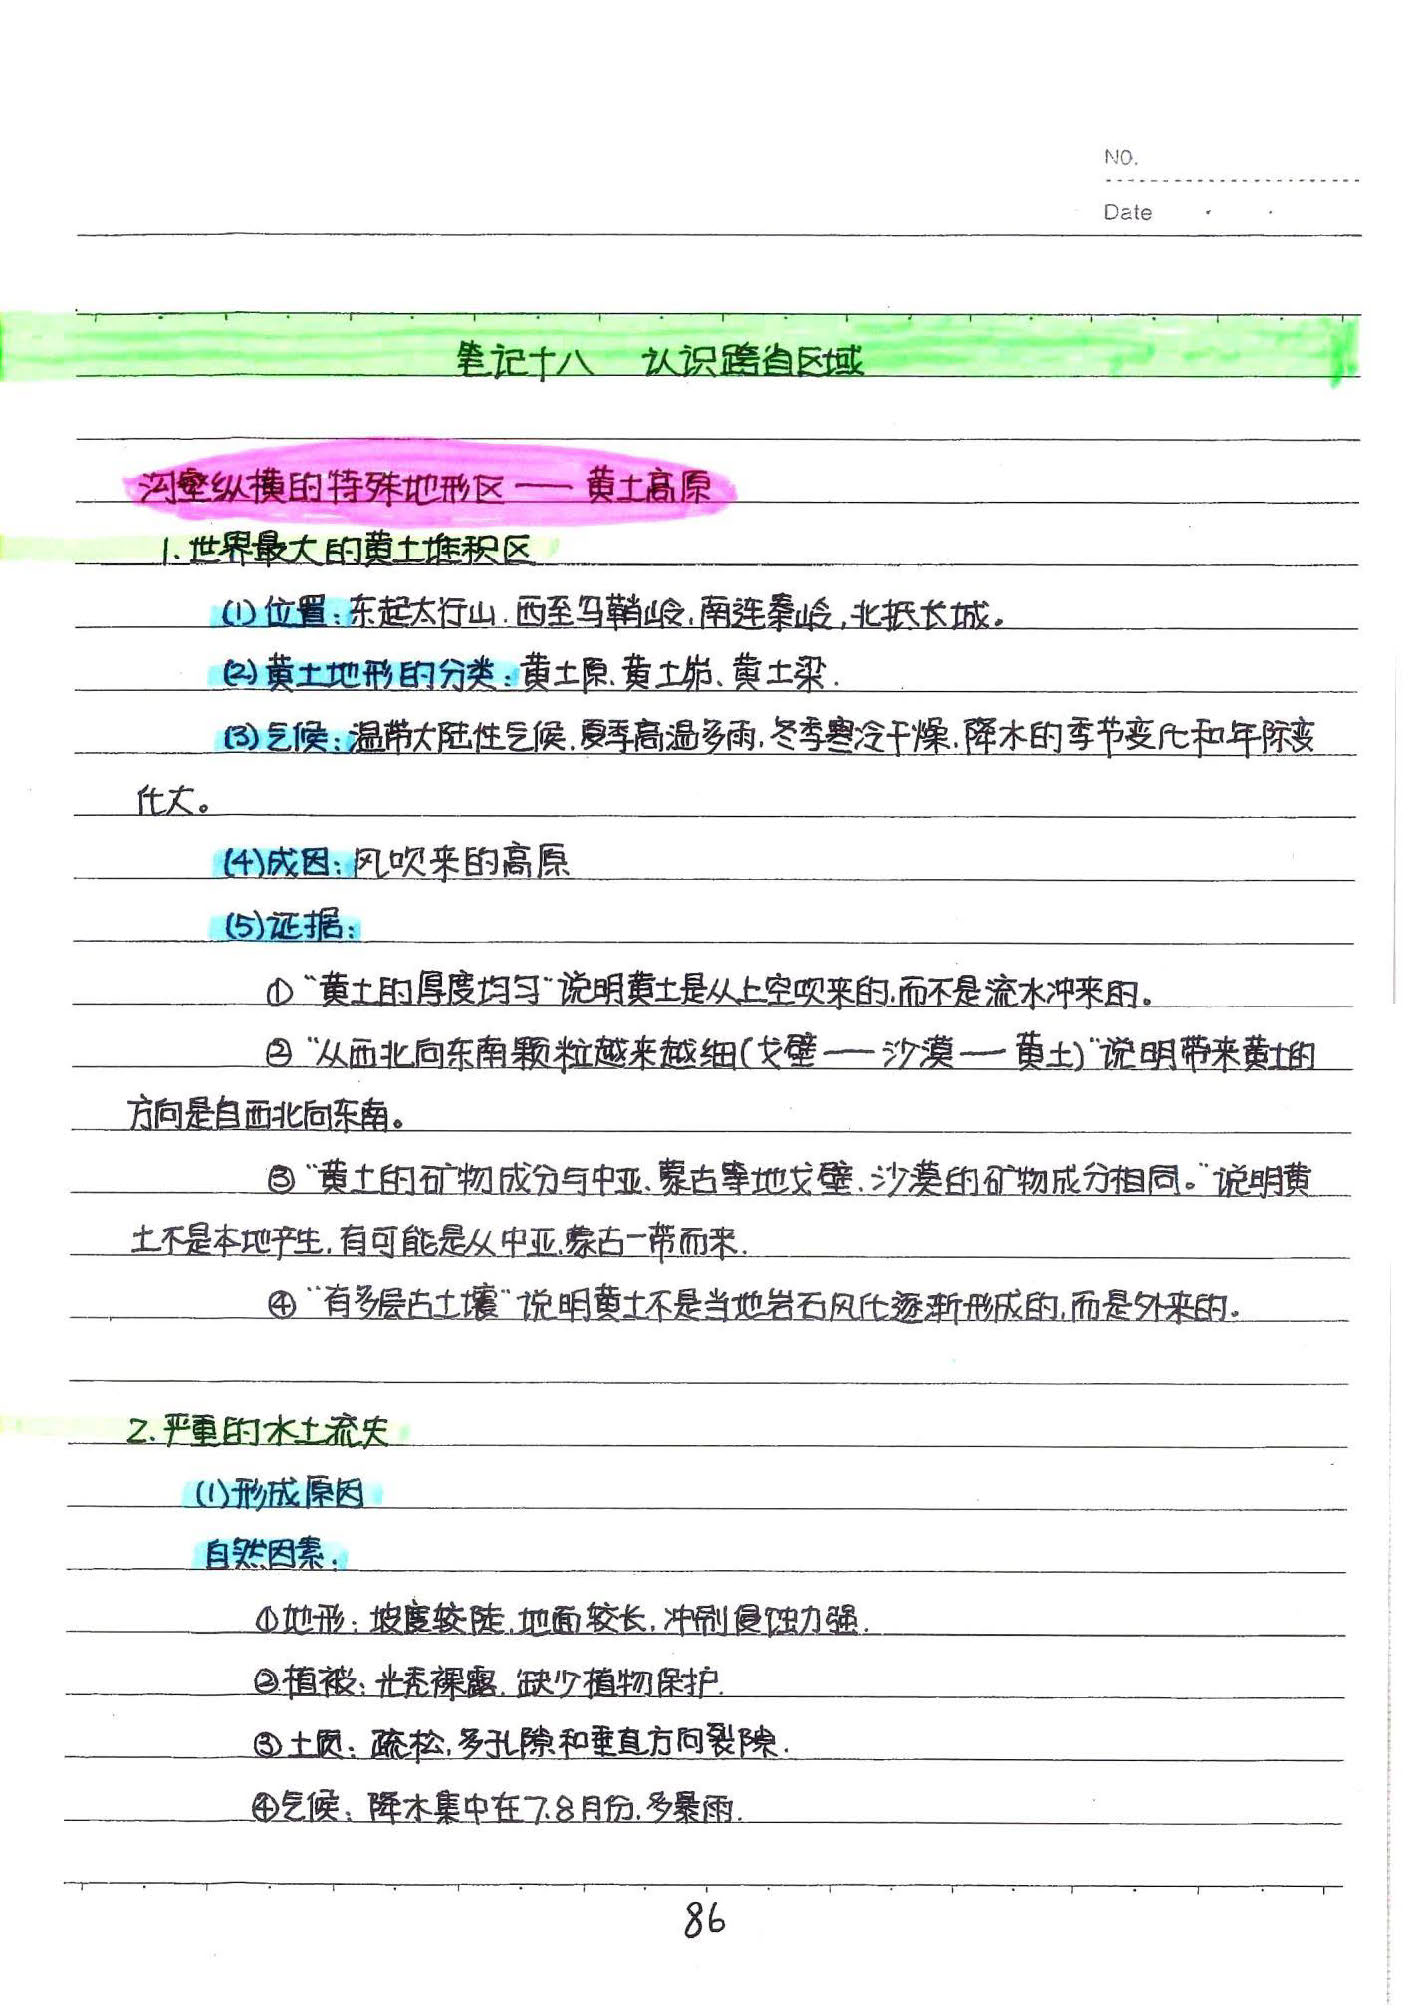 NO.
Date
笔记十八 认识跨省区域
沟壑纵横的特殊地形区——黄土高原
1.世界最大的黄土堆积区
(1)位置:东起太行山、西至乌鞘岭、南连秦岭,北抵长城。
(2)黄土地形的分类:黄土原、黄土峁、黄土梁.
(3)气候:温带大陆性气候,夏季高温多雨,冬季寒冷干燥,降水的季节变化和年际变
化大。
(4)成因:风吹来的高原
(5)证据:
①“黄土的厚度均匀”说明黄土是从上空吹来的,而不是流水冲来的。
②“从西北向东南颗粒越来越细(戈壁—沙漠—黄土)”说明带来黄土的
方向是自西北向东南。
③“黄土的矿物成分与中亚、蒙古等地戈壁、沙漠的矿物成分相同。”说明黄
土不是本地产生,有可能是从中亚、蒙古一带而来.
④“有多层古土壤”说明黄土不是当地岩石风化逐渐形成的,而是外来的。
2.严重的水土流失
(1)形成原因
自然因素:
①地形:坡度较陡,地面较长,冲刷侵蚀力强.
②植被:光秃裸露,缺少植物保护.
③土质:疏松,多孔隙和垂直方向裂隙.
④气候:降水集中在7、8月份,多暴雨.
86